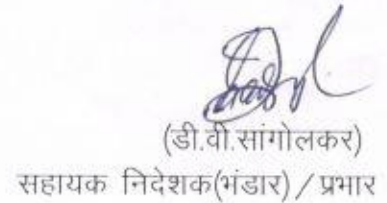 (डी.वी.सांगोलकर)
सहायक निदेशक(भंडार) / प्रभार